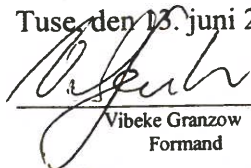 Tuse, den 13. juni 2
Vibeke Granzow
Formand